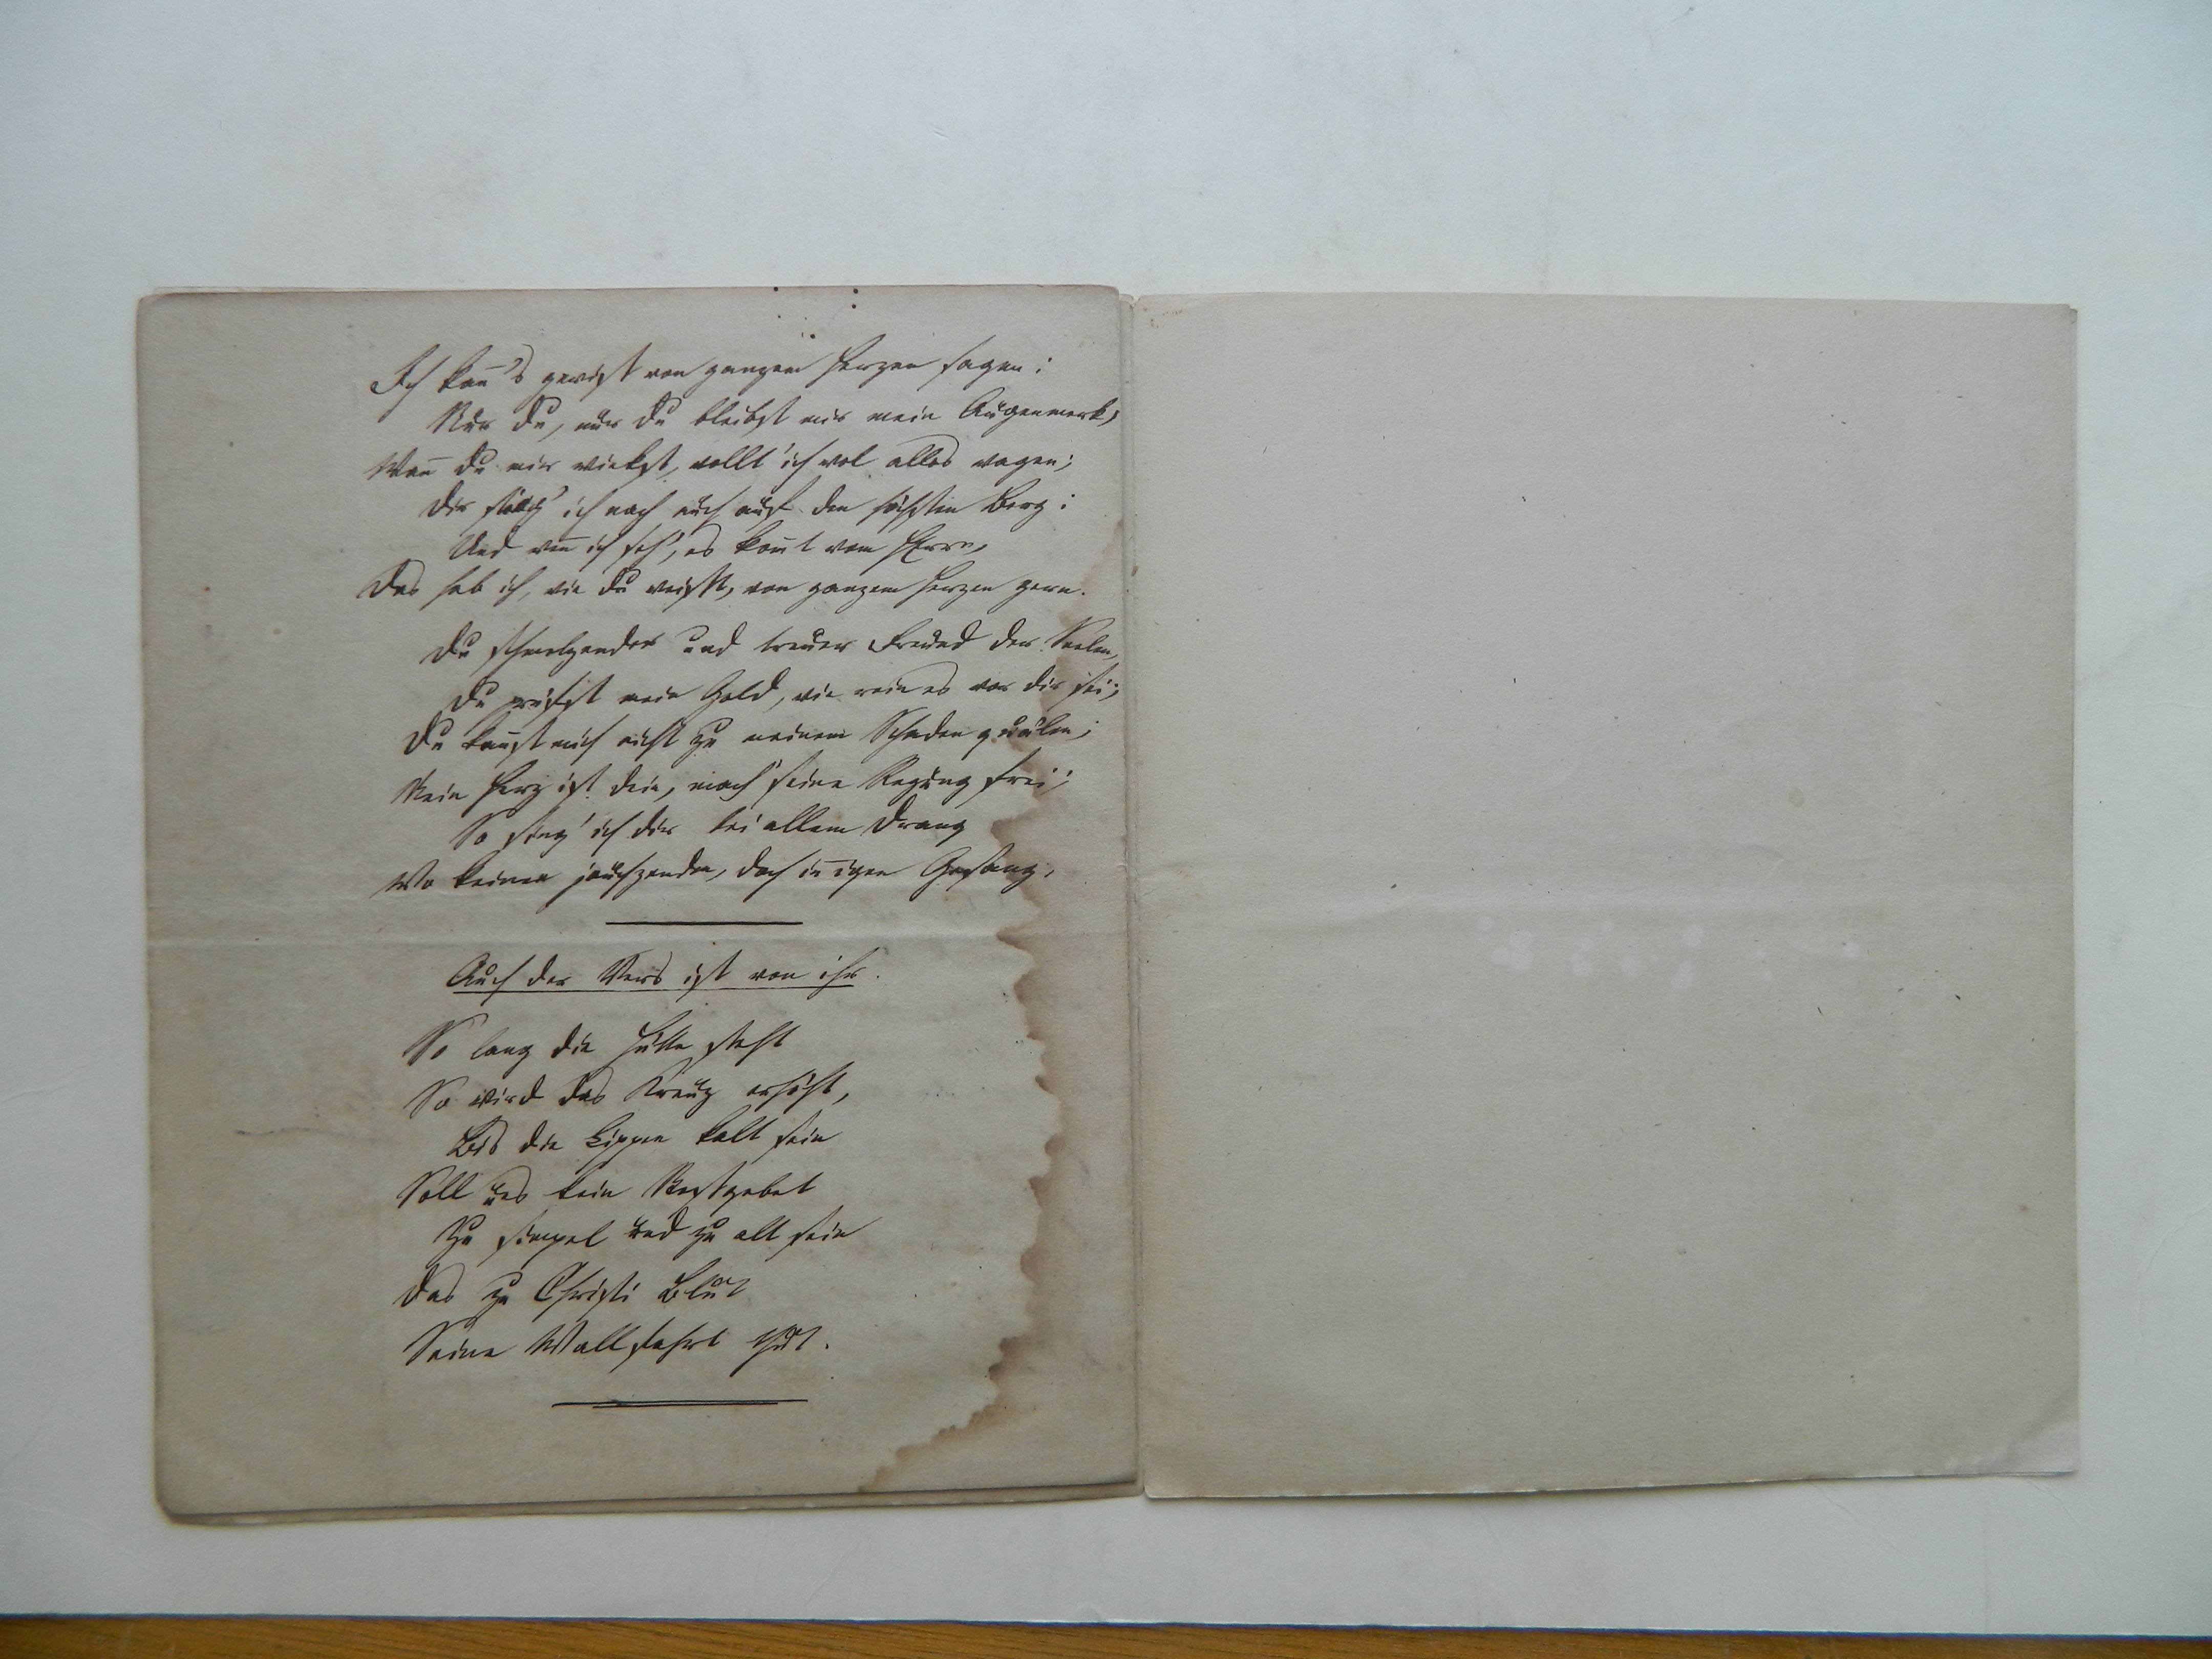 Ich kan̄'s gewißt von ganzem Herzen sagen:
Nur du, nur du bleibst mir mein Augenmerk,
Wan̄ du mir winkst, wollt' ich wol alles wagen;
Dir stieg' ich nach auch auf den höchsten Berg:
Und wen̄ ich seh', es kom̄t vom HErrn,
Das hab ich, wie du weißst, von ganzem Herzen gern.
Du schmelzender und treuer Freund der Seelen,
Du prüfst mein Gold, wie rein es vor dir sei;
Du kan̄st mich nicht zu meinem Schaden quälen;
Mein Herz ist dein, mach' seine Regung frei;
So sing' ich dir bei allem Drang
Wo keinen jauchzenden, doch in̄igen Gesang.
Auch der Vers ist von ihr.
So lang die Hütte steht
So wird das Kreuz erhöht,
Bis die Lippen kalt sein
Soll uns kein Versgebet
Zu simpel und zu alt sein
Das zu Christi Blut
Seine Wallfahrt thut.